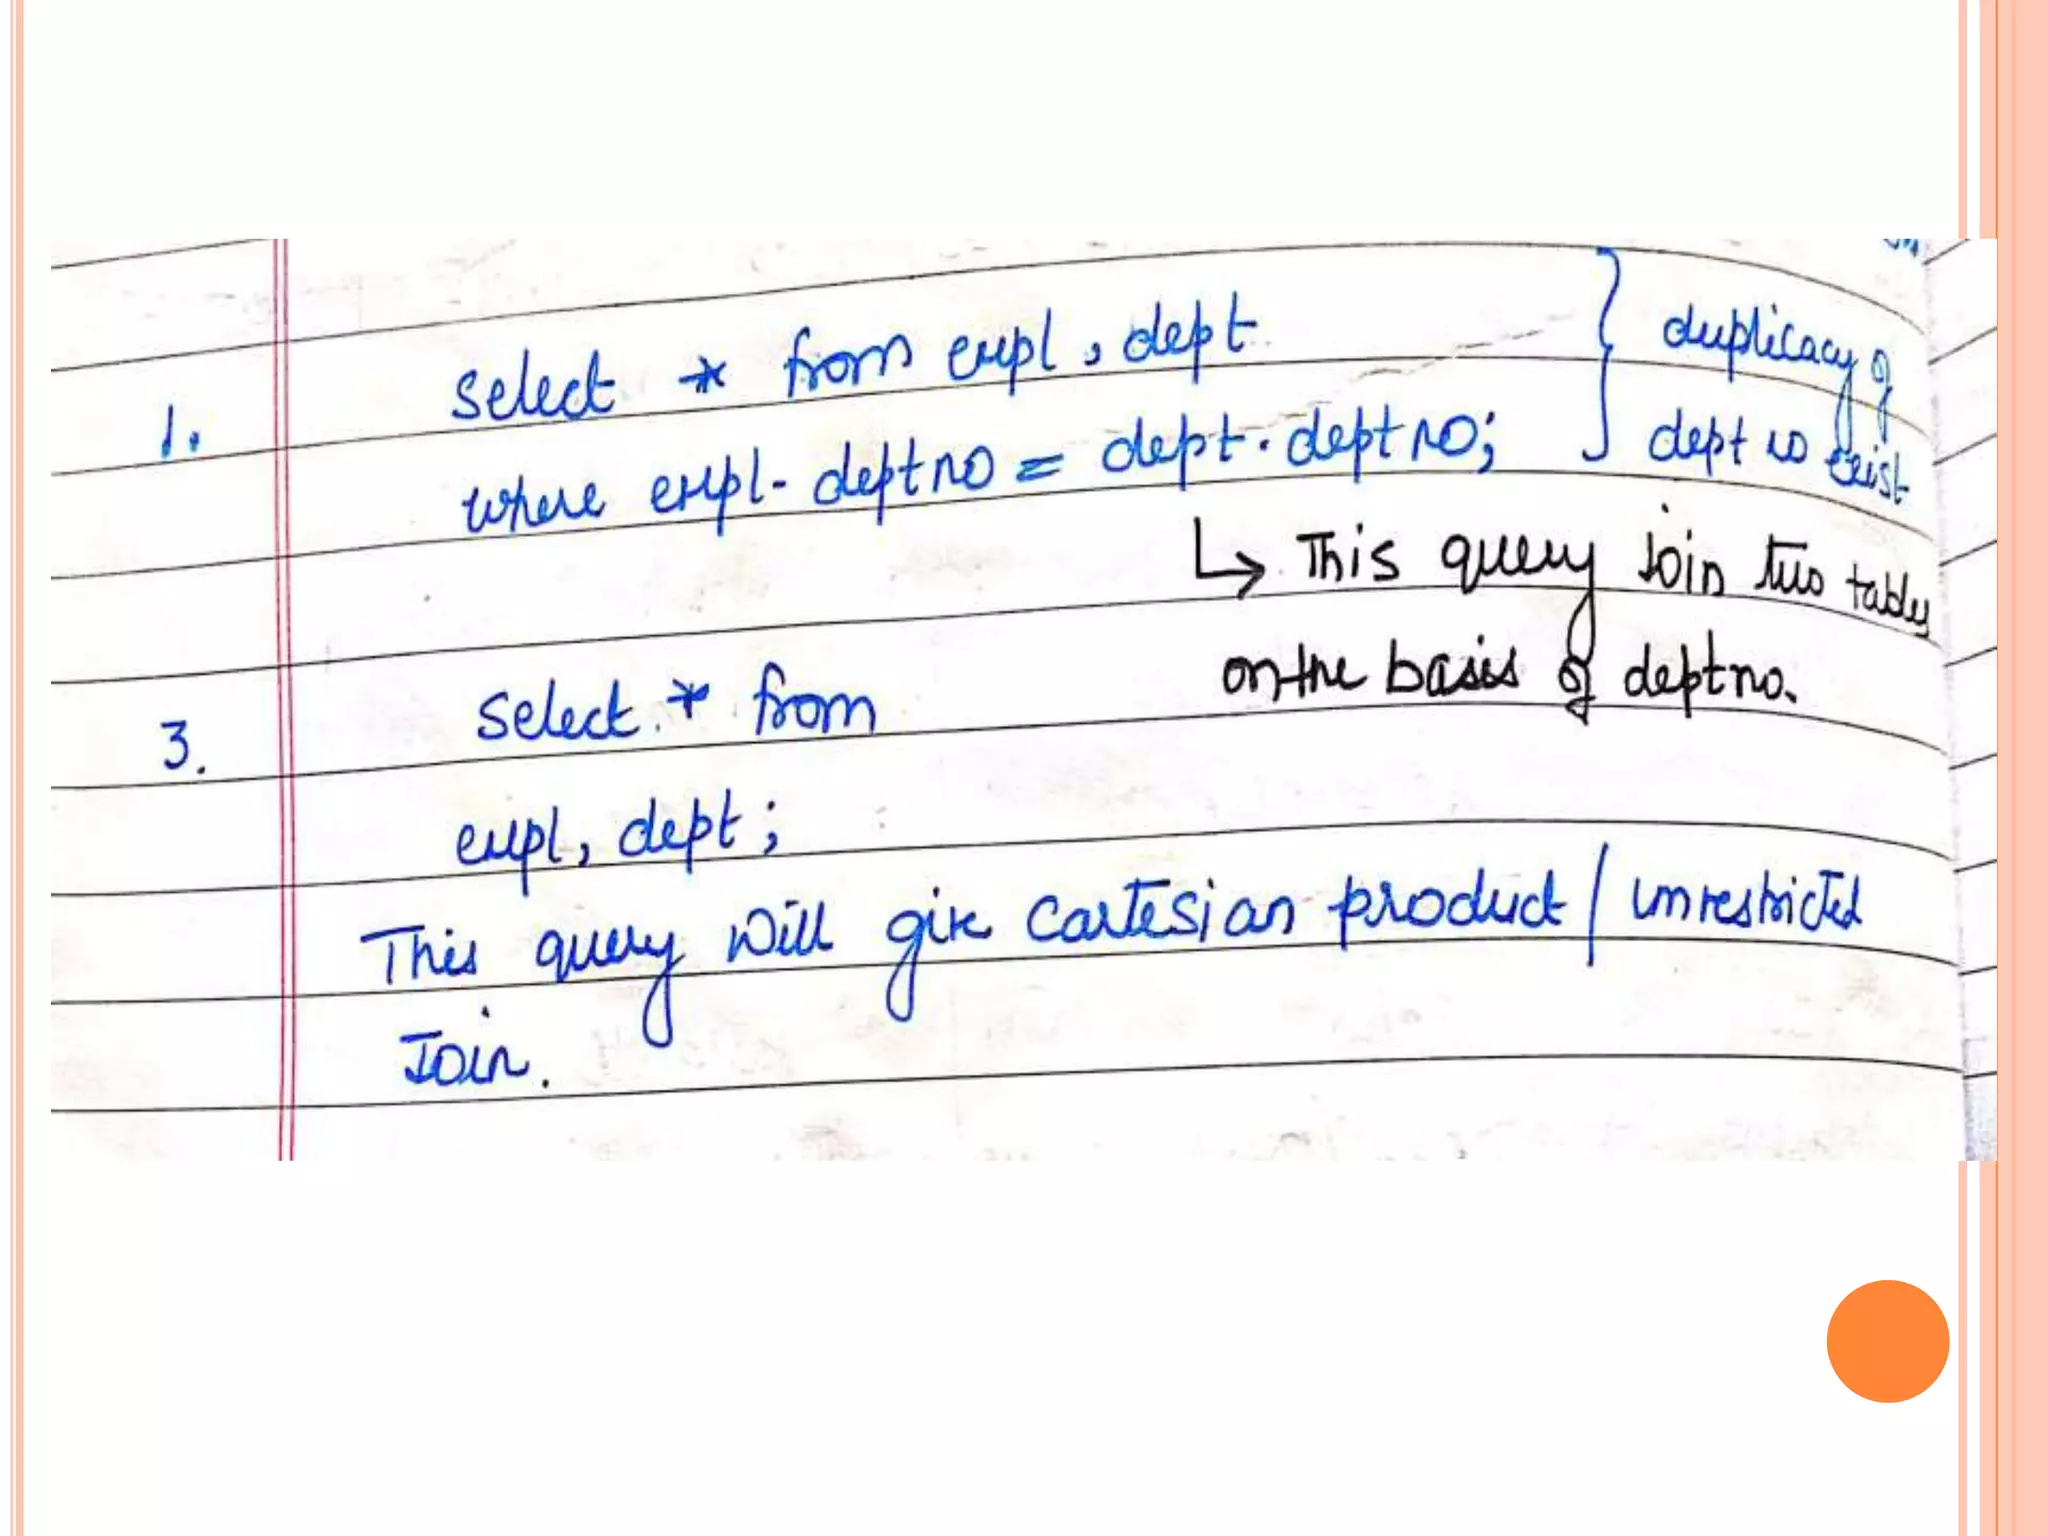 1. select * from empl, dept } duplicacy of
where empl. deptno = dept. deptno; dept no exist
↳ This query join two tables
on the basis of deptno.
3. select * from
empl, dept;
This query will give cartesian product / unrestricted
Join.